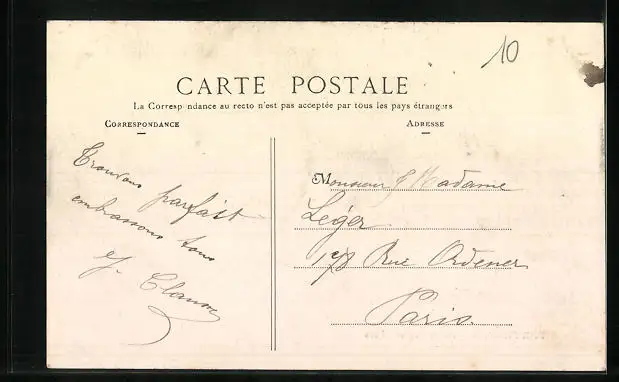 10
CARTE POSTALE
La Correspondance au recto n'est pas acceptée par tous les pays étrangers
CORRESPONDANCE
ADRESSE
Trouvons parfait
embrassons tous
Monsieur & Madame
Léger
178 Rue Ordener
Paris